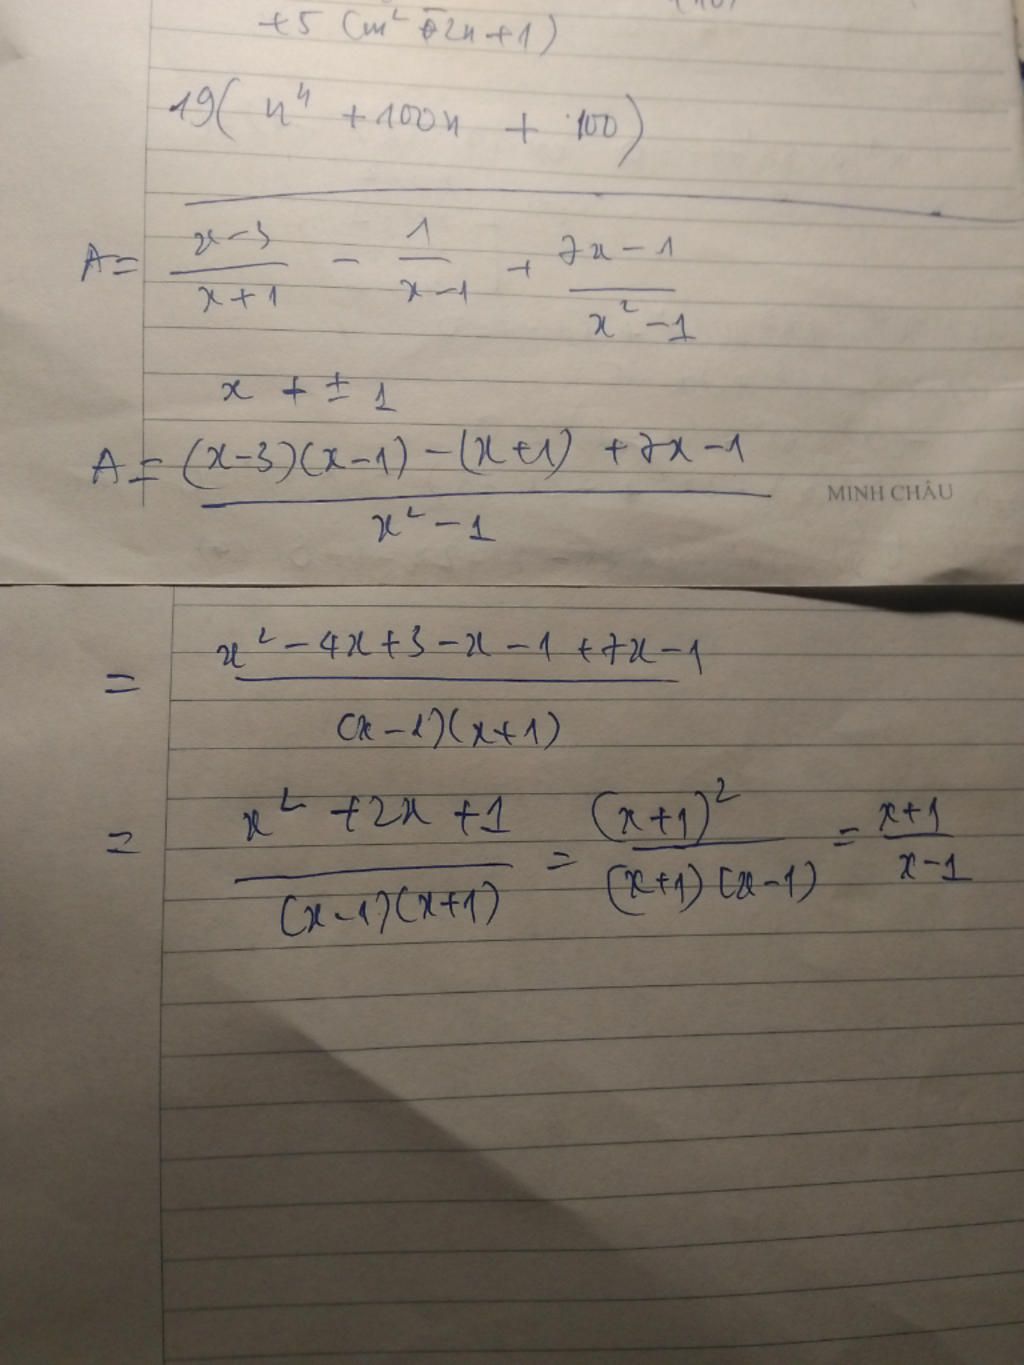 +5 (m² - 2n + 1)
19( n⁴ + 100n + 100)
A = (x-3)/(x+1) - 1/(x-1) + (7x-1)/(x²-1)
x ≠ ± 1
A = ((x-3)(x-1) - (x+1) + 7x-1)/(x²-1)
MINH CHÂU
= (x² - 4x + 3 - x - 1 + 7x - 1)/((x-1)(x+1))
= (x² + 2x + 1)/((x-1)(x+1)) = (x+1)²/((x+1)(x-1)) = (x+1)/(x-1)